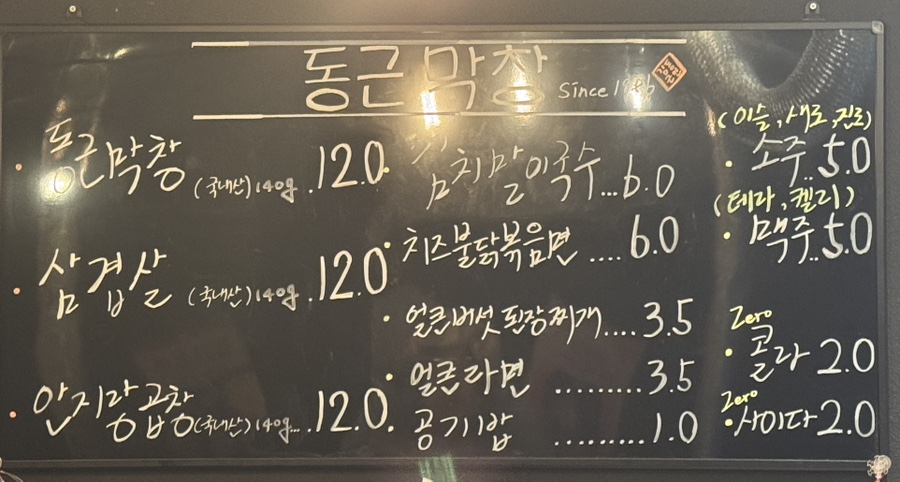 동근막창
Since 1986
동근막창 (국내산) 140g . 12.0
삼겹살 (국내산) 140g . 12.0
안지랑곱창 (국내산) 140g... 12.0
김치말이국수...6.0
치즈불닭볶음면 ....6.0
얼큰버섯된장찌개....3.5
얼큰라면 .........3.5
공기밥 .........1.0
(이슬, 새로, 진로)
소주..5.0
(테라, 켈리)
맥주..5.0
Zero
콜라 2.0
Zero
사이다 2.0